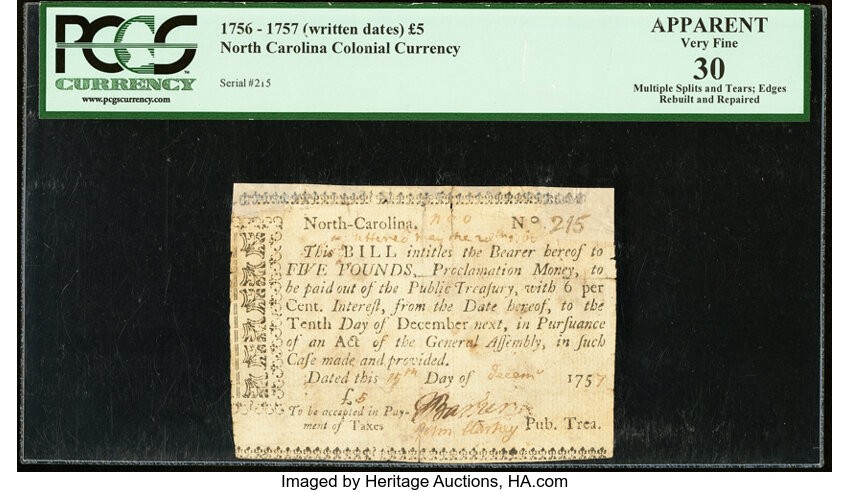 PCGS
CURRENCY
www.pcgscurrency.com
1756 - 1757 (written dates) £5
North Carolina Colonial Currency
Serial #215
APPARENT
Very Fine
30
Multiple Splits and Tears; Edges
Rebuilt and Repaired
North-Carolina. No 215
This BILL intitles the Bearer hereof to
FIVE POUNDS, Proclamation Money, to
be paid out of the Public Treasury, with 6 per
Cent. Intereſt, from the Date hereof, to the
Tenth Day of December next, in Purſuance
of an Act of the General Aſſembly, in ſuch
Caſe made and provided.
Dated this Day of Decemr 1757
£5
To be accepted in Pay-
ment of Taxes
John Starkey Pub. Trea.
Imaged by Heritage Auctions, HA.com